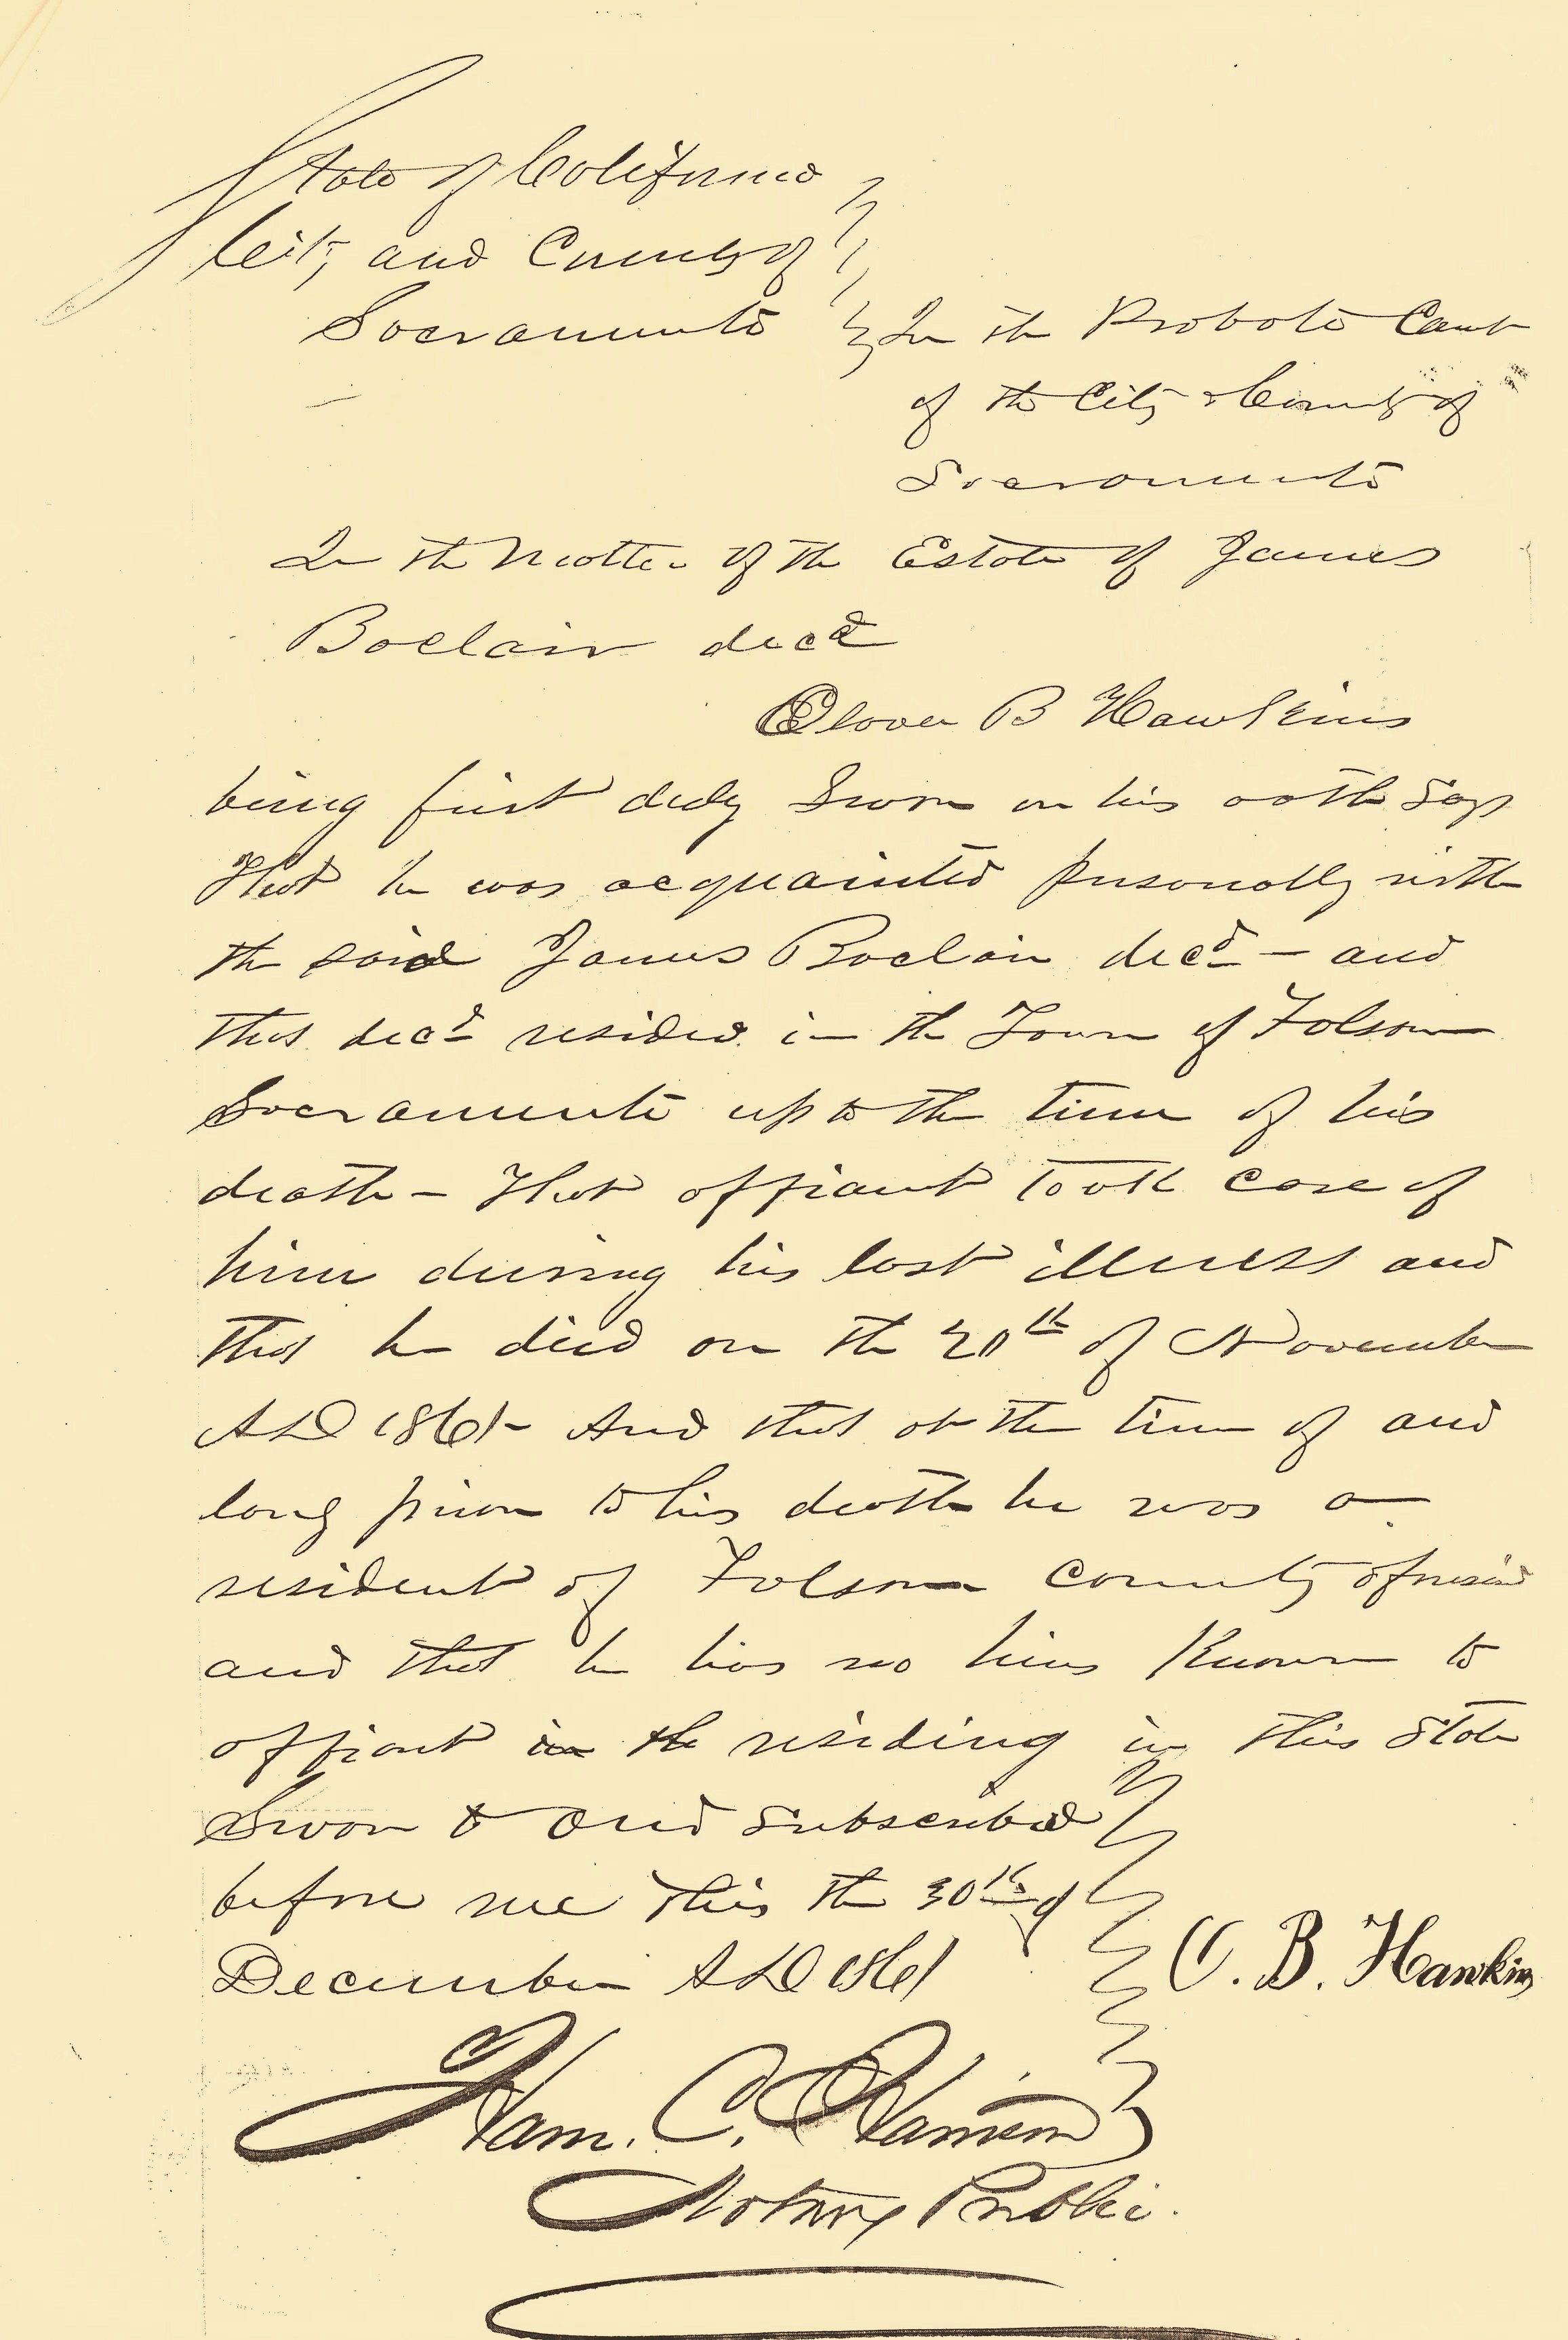 State of California
City and County of
Sacramento
In the Probate Court
of the City & County of
Sacramento
In the Matter of the Estate of James
Boclair decd
B Hawkins
being first duly Sworn on his oath Says
That he was acquainted personally with
the said James Boclair decd – and
that decd resided in the Town of Folsom
Sacramento up to the time of his
death – That affiant took care of
him during his last illness and
that he died on the th of November
AD 1861 – And that at the time of and
long prior to his death he was a
resident of Folsom County aforesaid
and that he has no heirs Known to
affiant in the residing in this State
Sworn to and Subscribed
before me this the 30th of
December AD 1861
O. B. Hawkins
C.
Notary Public.